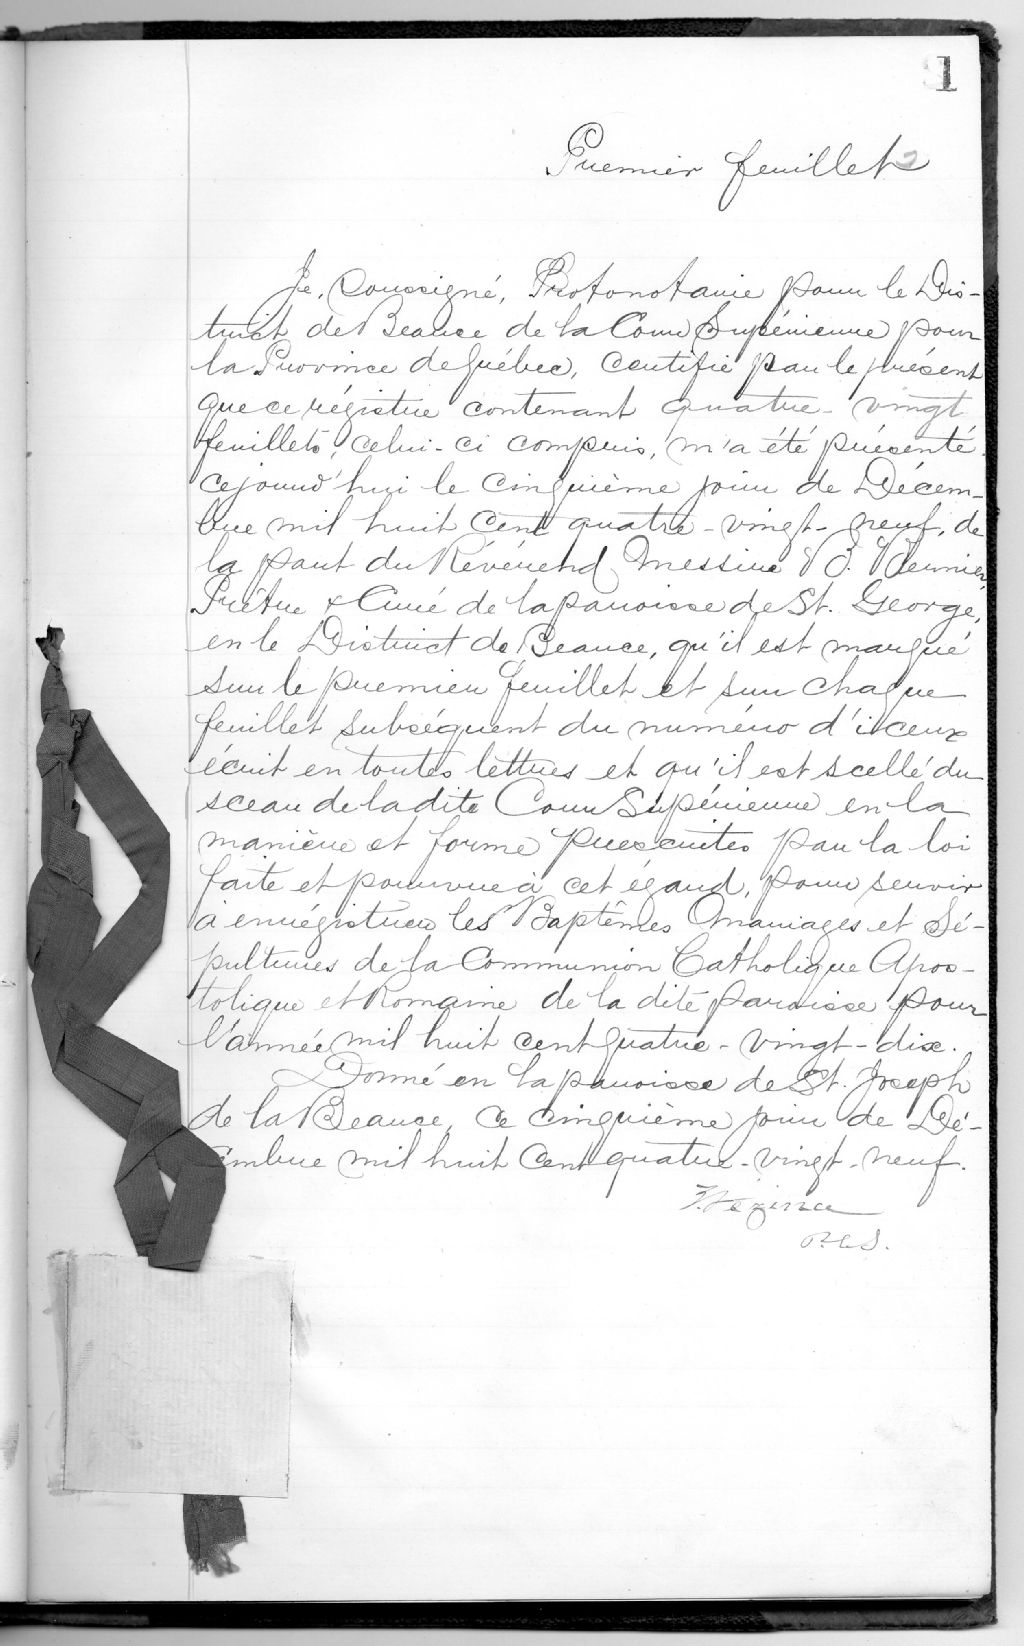 1
Premier feuillet
Je, Soussigné, Protonotaire pour le Dis-
trict de Beauce de la Cour Supérieure pour
la Province de Québec, certifie par le présent
que ce régistre contenant quatre-vingt
feuillets, celui-ci compris, m'a été présenté
cejourd'hui le cinquième jour de Décem-
bre mil huit cent quatre-vingt-neuf, de
la part du Révérend Messire Bernier,
Prêtre & Curé de la paroisse de St. George,
en le District de Beauce, qu'il est marqué
sur le premier feuillet et sur chaque
feuillet subséquent du numéro d'iceux
écrit en toutes lettres et qu'il est scellé du
sceau de la dite Cour Supérieure en la
manière et forme prescrites par la loi
faite et pourvue à cet égard, pour servir
à enrégistrer les Baptêmes Mariages et Sé-
pultures de la Communion Catholique Apos-
tolique et Romaine de la dite paroisse pour
l'année mil huit cent quatre-vingt-dix.
Donné en la paroisse de St. Joseph
de la Beauce, ce cinquième jour de Dé-
cembre mil huit cent quatre-vingt-neuf.
Vézina
P.C.S.